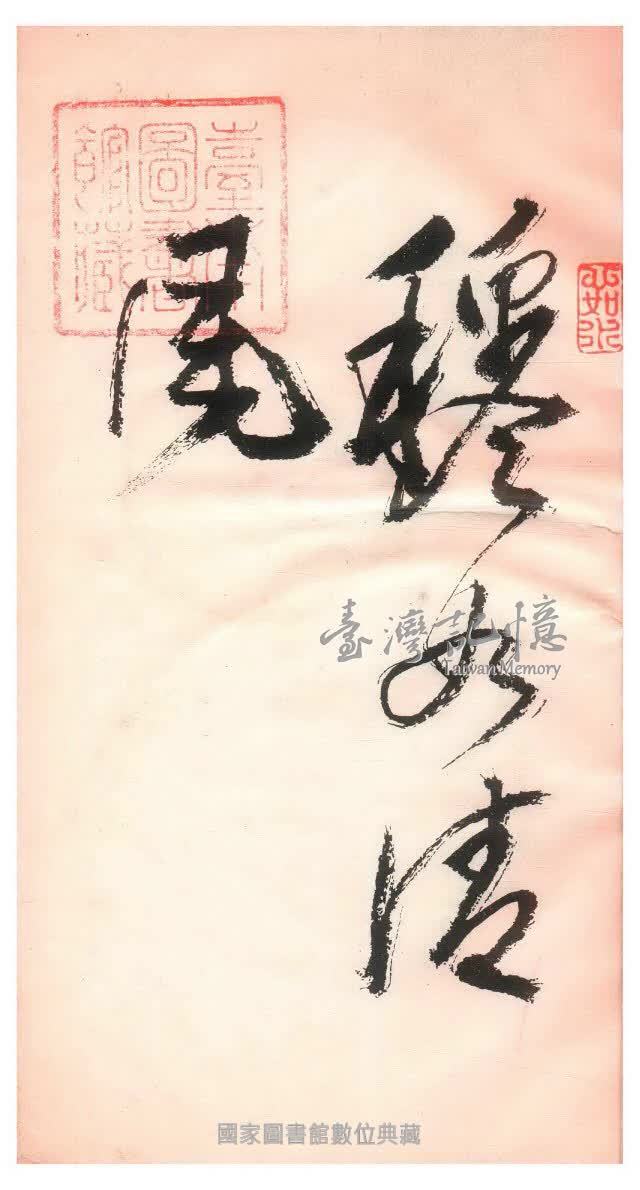 穆如清
風
臺灣圖書館藏
茹水
臺灣記憶
Taiwan Memory
國家圖書館數位典藏